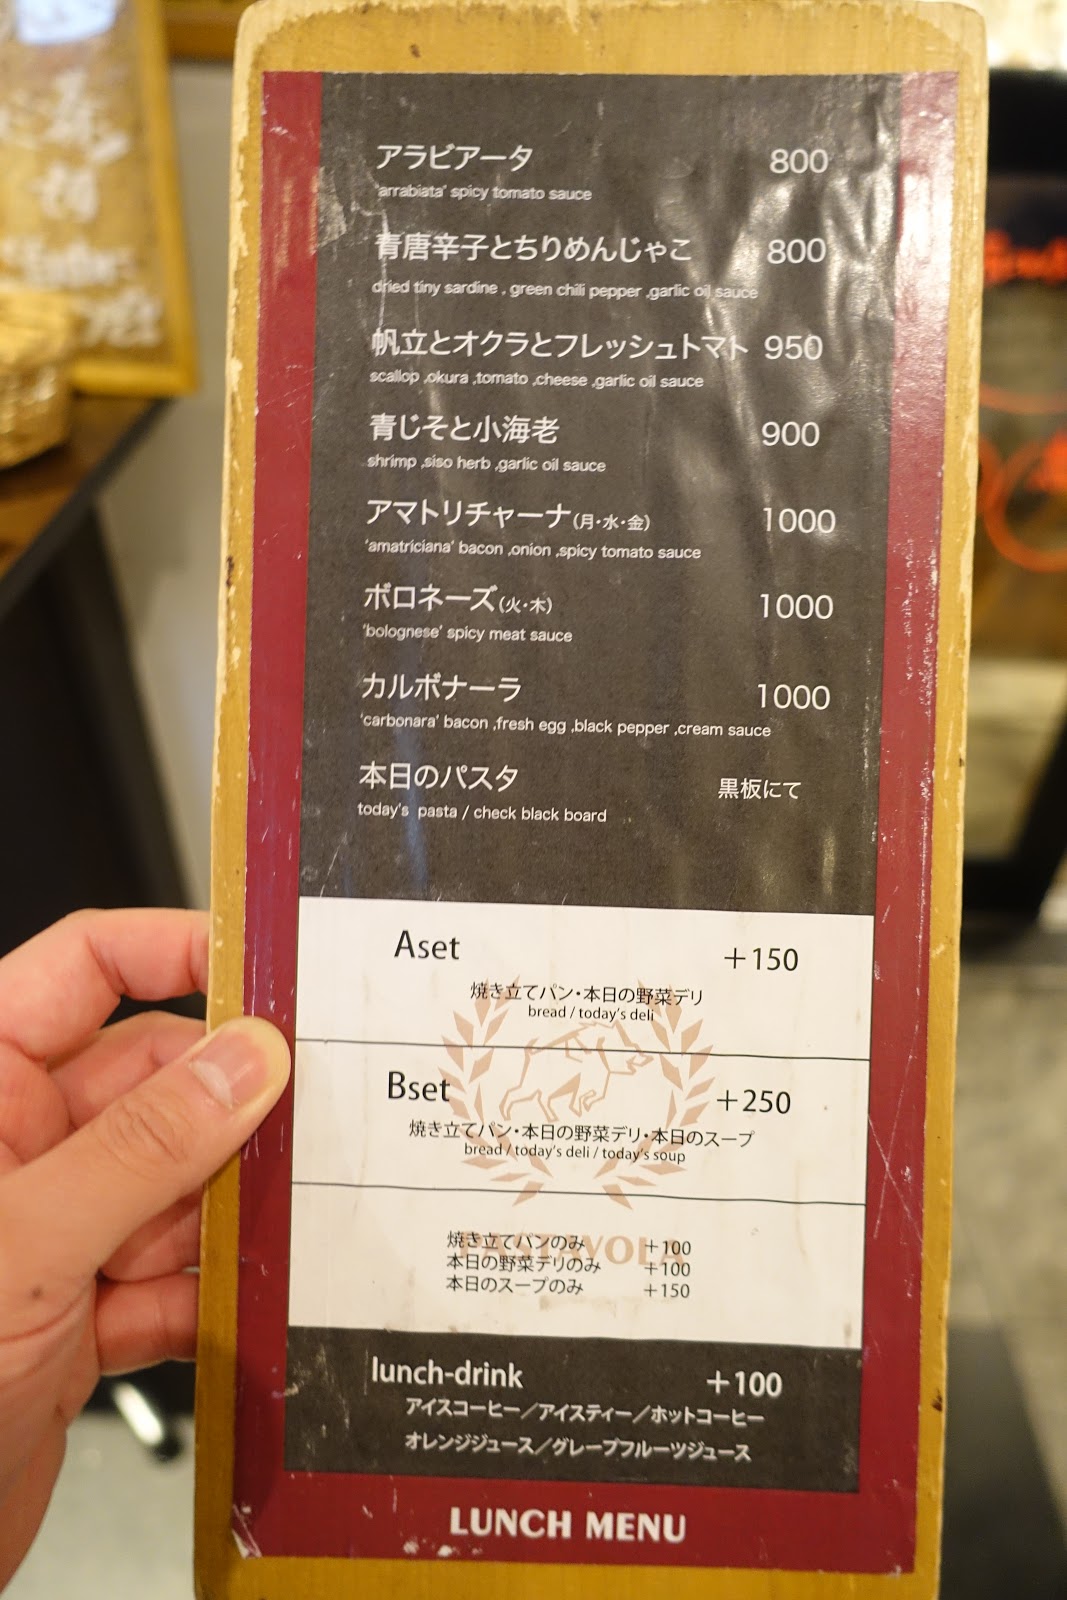 アラビアータ 800
'arrabiata' spicy tomato sauce
青唐辛子とちりめんじゃこ 800
dried tiny sardine , green chili pepper ,garlic oil sauce
帆立とオクラとフレッシュトマト 950
scallop ,okura ,tomato ,cheese ,garlic oil sauce
青じそと小海老 900
shrimp ,siso herb ,garlic oil sauce
アマトリチャーナ(月・水・金) 1000
'amatriciana' bacon ,onion ,spicy tomato sauce
ボロネーズ(火・木) 1000
'bolognese' spicy meat sauce
カルボナーラ 1000
'carbonara' bacon ,fresh egg ,black pepper ,cream sauce
本日のパスタ 黒板にて
today's pasta / check black board
Aset +150
焼き立てパン・本日の野菜デリ
bread / today's deli
Bset +250
焼き立てパン・本日の野菜デリ・本日のスープ
bread / today's deli / today's soup
焼き立てパンのみ +100
本日の野菜デリのみ +100
本日のスープのみ +150
lunch-drink +100
アイスコーヒー／アイスティー／ホットコーヒー
オレンジジュース／グレープフルーツジュース
LUNCH MENU